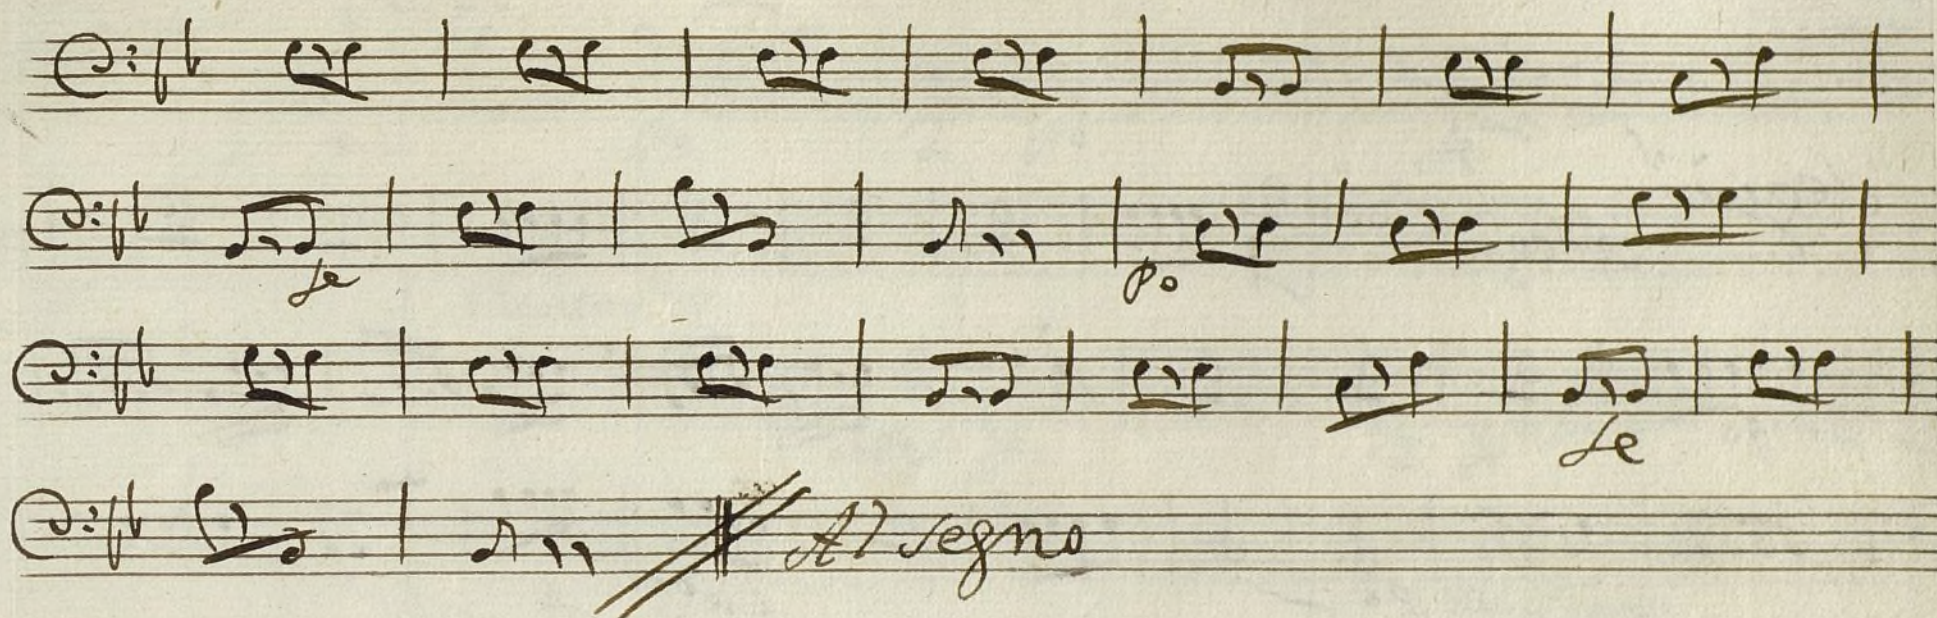 fe
po
fe
Al segno